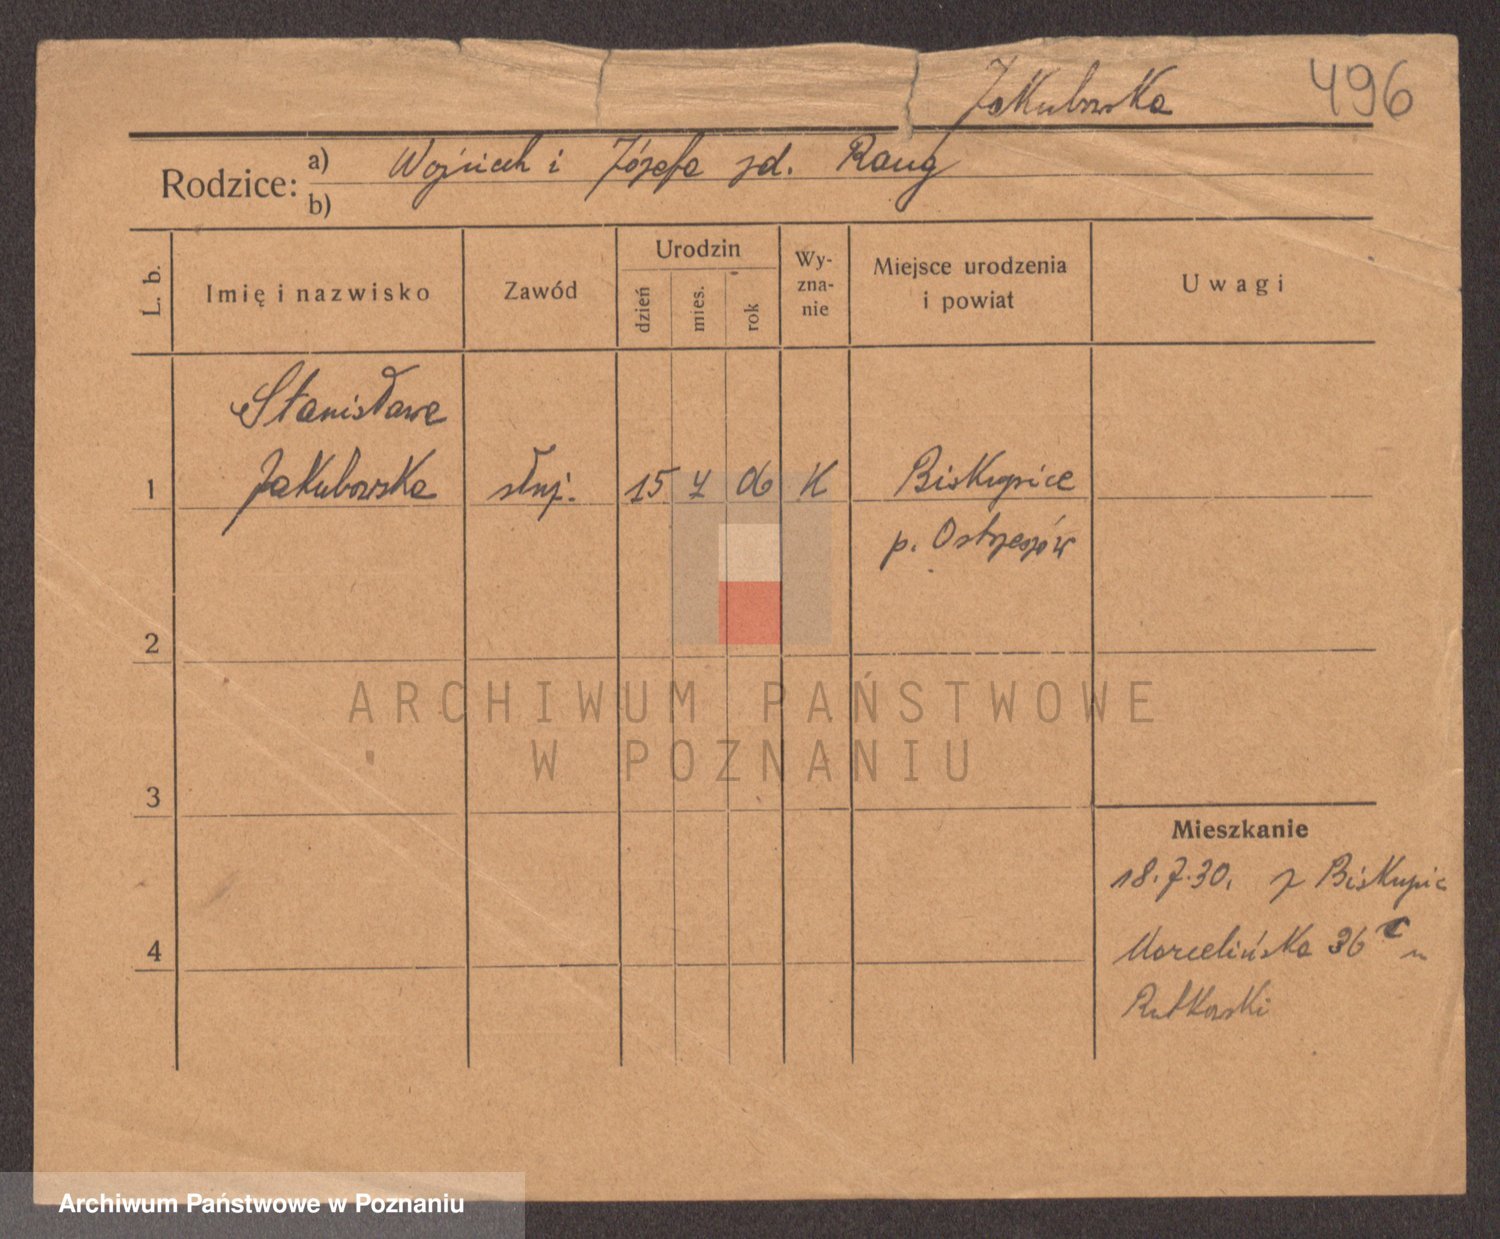 Jakubowska 496
Rodzice: a) Wojciech i Józefa zd. Rang
b)
L. b. Imię i nazwisko Zawód Urodzin dzień mies. rok Wyznanie Miejsce urodzenia i powiat Uwagi
Stanisława
1 Jakubowska służ. 15 4 06 K Biskupice
p. Ostrzeszów
2
ARCHIWUM PAŃSTWOWE
W POZNANIU
3
Mieszkanie
18.7.30. z Biskupic
4 Marcelińska 36 u
Rutkowski
Archiwum Państwowe w Poznaniu